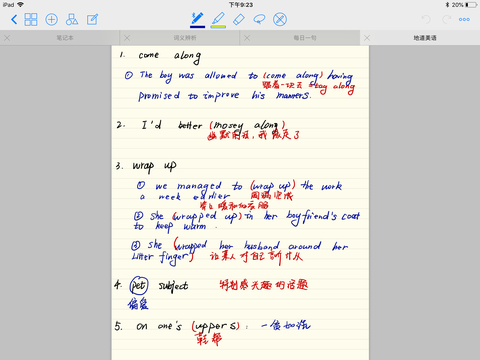 iPad
下午9:23
20%
笔记本
词义辨析
每日一句
地道美语
1. come along
① The boy was allowed to (come along) having
跟着一块去 stay along
promised to improve his manners.
2. I'd better (mosey along)
幽默用法，我撤走了
3. wrap up
① we managed to (wrap up) the work
a week earlier 圆满完成
② She (wrapped up) in her boyfriend's coat
to keep warm
③ She (wrapped her husband around her
litter finger) 让某人对自己言听计从
4. pet subject 特别感兴趣的话题
偏爱
5. on one's (uppers): 一贫如洗
鞋帮